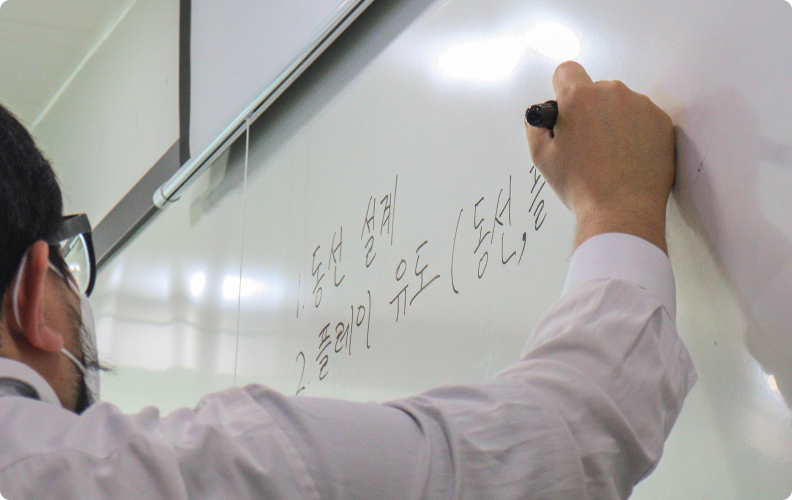 1. 동선 설계
2. 플레이 유도 (동선, 플